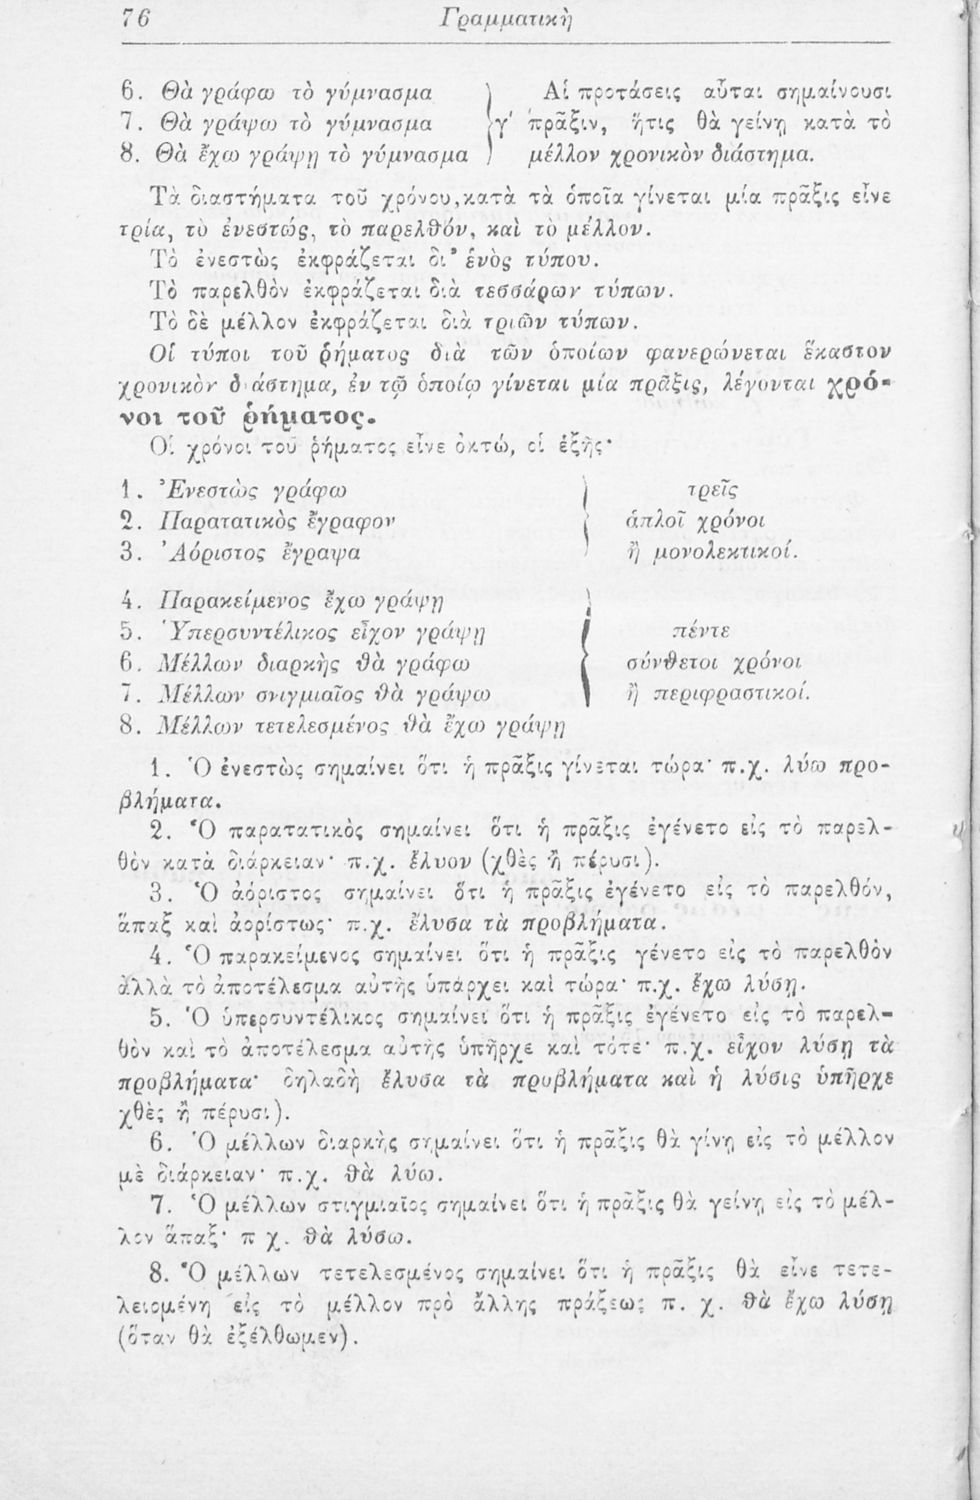 76 Γραμματικὴ
6. Θὰ γράφω τὸ γύμνασμα
7. Θὰ γράψω τὸ γύμνασμα
8. Θὰ ἔχω γράψῃ τὸ γύμνασμα
γ'
Αἱ προτάσεις αὗται σημαίνουσι
πρᾶξιν, ἥτις θὰ γείνῃ κατὰ τὸ
μέλλον χρονικὸν διάστημα.
Τὰ διαστήματα τοῦ χρόνου, κατὰ τὰ ὁποῖα γίνεται μία πρᾶξις εἶνε
τρία, τὸ ἐνεστώς, τὸ παρελθόν, καὶ τὸ μέλλον.
Τὸ ἐνεστὼς ἐκφράζεται δι' ἑνὸς τύπου.
Τὸ παρελθὸν ἐκφράζεται διὰ τεσσάρων τύπων.
Τὸ δὲ μέλλον ἐκφράζεται διὰ τριῶν τύπων.
Οἱ τύποι τοῦ ῥήματος διὰ τῶν ὁποίων φανερώνεται ἕκαστον
χρονικὸν δάστημα, ἐν τῷ ὁποίῳ γίνεται μία πρᾶξις, λέγονται χρό-
νοι τοῦ ῥήματος.
Οἱ χρόνοι τοῦ ῥήματος εἶνε ὀκτώ, οἱ ἑξῆς·
1. Ἐνεστὼς γράφω
2. Παρατατικὸς ἔγραφον
3. Ἀόριστος ἔγραψα
τρεῖς
ἁπλοῖ χρόνοι
ἢ μονολεκτικοί.
4. Παρακείμενος ἔχω γράψῃ
5. Ὑπερσυντέλικος εἶχον γράψῃ
6. Μέλλων διαρκὴς θὰ γράφω
7. Μέλλων σνιγμιαῖος θὰ γράψω
8. Μέλλων τετελεσμένος θὰ ἔχω γράψῃ
πέντε
σύνθετοι χρόνοι
ἢ περιφραστικοί.
1. Ὁ ἐνεστὼς σημαίνει ὅτι ἡ πρᾶξις γίνεται τώρα· π.χ. λύω προ-
βλήματα.
2. Ὁ παρατατικὸς σημαίνει ὅτι ἡ πρᾶξις ἐγένετο εἰς τὸ παρελ-
θὸν κατὰ διάρκειαν· π.χ. ἔλυον (χθὲς ἢ πέρυσι).
3. Ὁ ἀόριστος σημαίνει ὅτι ἡ πρᾶξις ἐγένετο εἰς τὸ παρελθόν,
ἅπαξ καὶ ἀορίστως· π.χ. ἔλυσα τὰ προβλήματα.
4. Ὁ παρακείμενος σημαίνει ὅτι ἡ πρᾶξις γένετο εἰς τὸ παρελθὸν
ἀλλὰ τὸ ἀποτέλεσμα αὐτῆς ὑπάρχει καὶ τώρα· π.χ. ἔχω λύσῃ.
5. Ὁ ὑπερσυντέλικος σημαίνει ὅτι ἡ πρᾶξις ἐγένετο εἰς τὸ παρελ-
θὸν καὶ τὸ ἀποτέλεσμα αὐτῆς ὑπῆρχε καὶ τότε· π.χ. εἶχον λύσῃ τὰ
προβλήματα· δηλαδὴ ἔλυσα τὰ προβλήματα καὶ ἡ λύσις ὑπῆρχε
χθὲς ἢ πέρυσι).
6. Ὁ μέλλων διαρκὴς σημαίνει ὅτι ἡ πρᾶξις θὰ γίνῃ εἰς τὸ μέλλον
μὲ διάρκειαν· π.χ. θὰ λύω.
7. Ὁ μέλλων στιγμιαῖος σημαίνει ὅτι ἡ πρᾶξις θὰ γείνῃ εἰς τὸ μέλ-
λον ἅπαξ· π χ. θὰ λύσω.
8. Ὁ μέλλων τετελεσμένος σημαίνει ὅτι ἡ πρᾶξις θὰ εἶνε τετε-
λειομένη εἰς τὸ μέλλον πρὸ ἄλλης πράξεως π. χ. θὰ ἔχω λύσῃ
(ὅταν θὰ ἐξέλθωμεν).